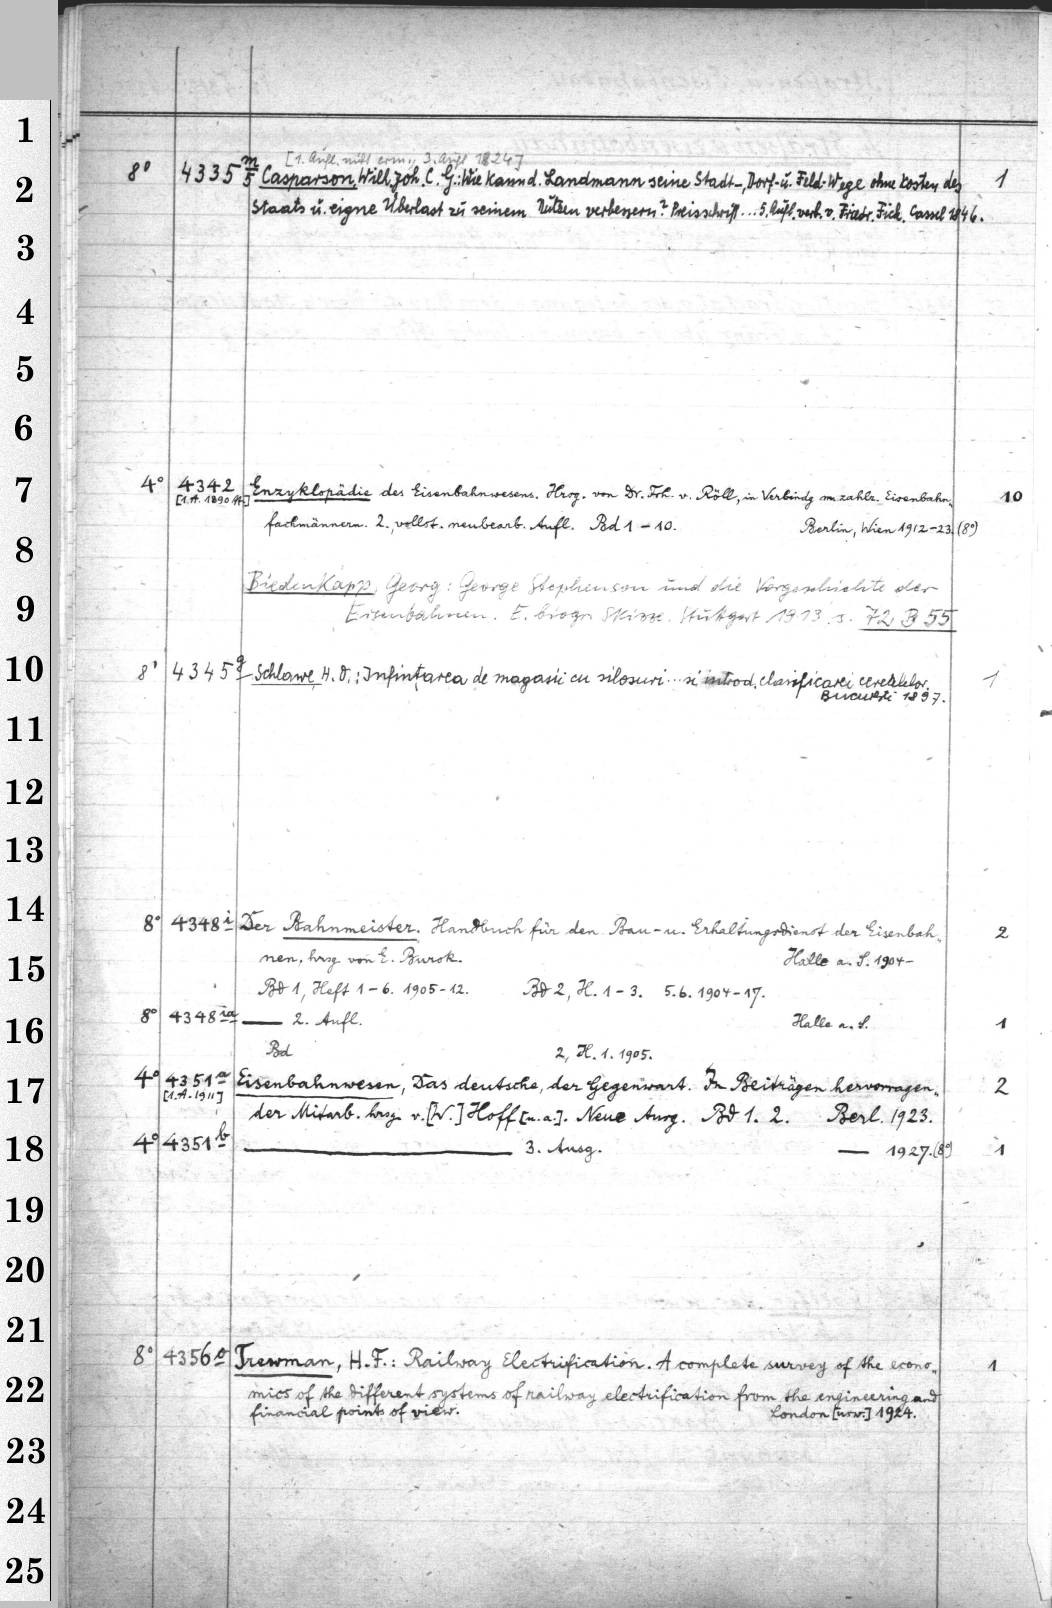 1
[1. Aufl. nicht erm., 3. Aufl 1824]
8° 4335 m/5 Casparson, Wilh. Joh. C. G.: Wie kann d. Landmann seine Stadt-, Dorf- u. Feld-Wege ohne Kosten des 1
2
Staats u. eigne Überlast zu seinem Nutzen verbessern? Preisschrift ... 5. Aufl. verb. v. Friedr. Fick. Cassel 1846.
3
4
5
6
7
4° 4342 Enzyklopädie des Eisenbahnwesens. Hrsg. von Dr. Frh. v. Röll, in Verbindg m. zahlr. Eisenbahn- 10
[1.A. 1890 ff.]
fachmännern. 2., vollst. neubearb. Aufl. Bd 1-10. Berlin, Wien 1912-23. (8°)
8
Biedenkapp, Georg: George Stephenson und die Vorgeschichte der
9
Eisenbahnen. E. biogr. Skizze. Stuttgart 1913 s. 72 B 55
10
8° 4345 g Schlawe, H. O.: Infintarea de magasii cu silosuri ... si introd. clasificarei cerealelor. 1
Bucuresti 1897.
11
12
13
14
8° 4348 i Der Bahnmeister. Handbuch für den Bau- u. Erhaltungsdienst der Eisenbah- 2
15
nen, hrsg. von E. Burok. Halle a. S. 1904-
Bd 1, Heft 1-6. 1905-12. Bd 2, H. 1-3. 5.6. 1904-17.
16
8° 4348 ia — 2. Aufl. Halle a. S. 1
Bd 2, H. 1. 1905.
17
4° 4351 a Eisenbahnwesen, Das deutsche, der Gegenwart. In Beiträgen hervorragen- 2
[1.A. 1911]
der Mitarb. hrsg. v. [W.] Hoff [u.a.]. Neue Ausg. Bd 1. 2. Berl. 1923.
18
4° 4351 b — 3. Ausg. — 1927. (8°) 1
19
20
21
8° 4356 o Trewman, H. F.: Railway Electrification. A complete survey of the econo- 1
22
mics of the different systems of railway electrification from the engineering and
financial points of view. London [usw.] 1924.
23
24
25